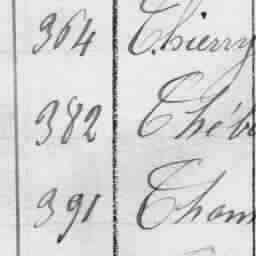 364 Thierry
382 Théb
391 Thom